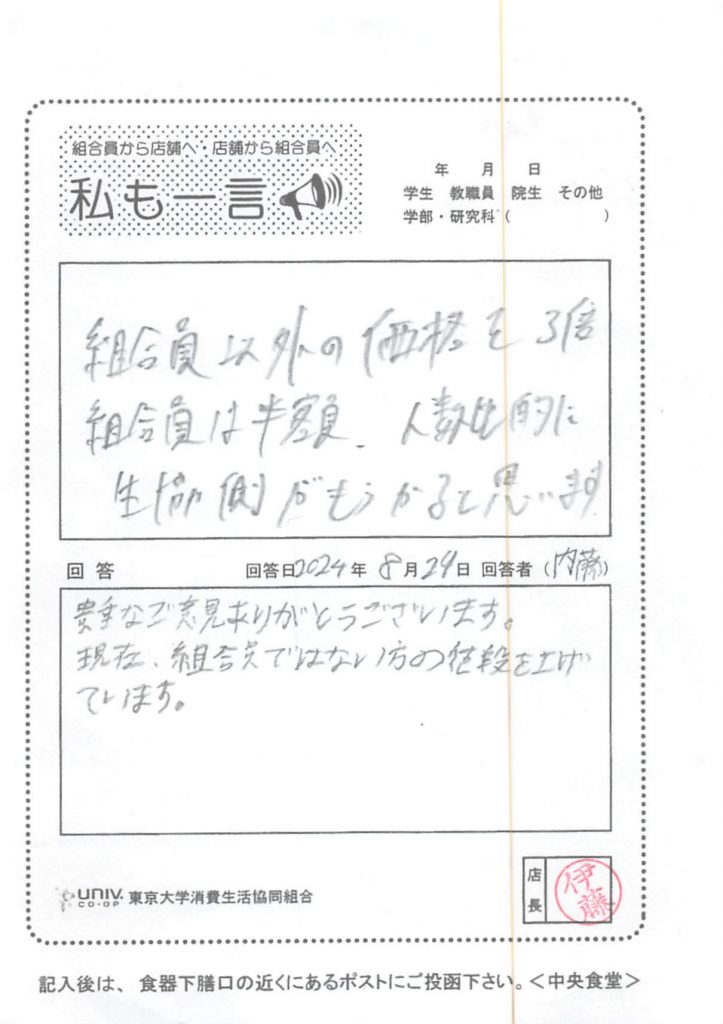 組合員から店舗へ・店舗から組合員へ
私も一言
年 月 日
学生 教職員 院生 その他
学部・研究科 ( )
組合員以外の価格を3倍
組合員は半額、人数比的に
生協側がもうかると思います
回答 回答日2024年8月29日 回答者(内藤)
貴重なご意見ありがとうございます。
現在、組合員ではない方の値段を上げ
ています。
UNIV. CO-OP 東京大学消費生活協同組合
店長
伊藤
記入後は、食器下膳口の近くにあるポストにご投函下さい。<中央食堂>